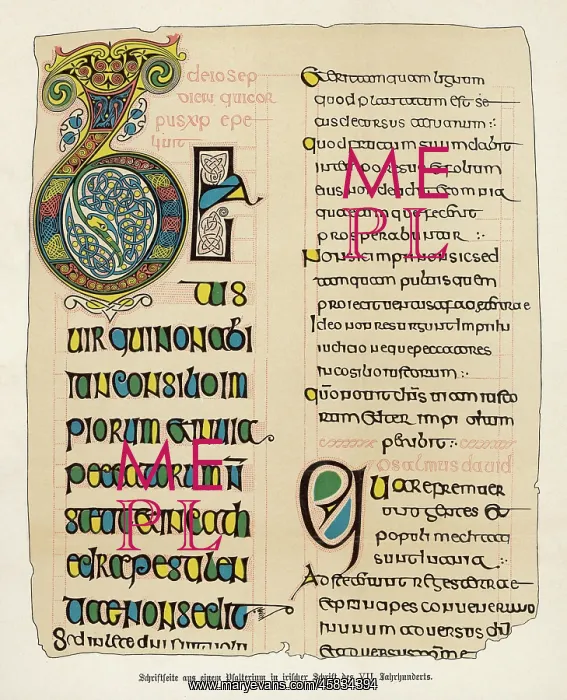 deiosep
pusxp epe
B
tus
uir qui non abi
it in consilio im
piorum & in uia
peccatorum n̄
stetit & in cath
edra pestilen
tiae non sedit
Sed in lege dni fuit uolun
& erit tamquam lignum
quod plantatum est se
cus decursus aquarum :
quod fructum suum dabit
in tempore suo & folium
eius non defluet & omnia
quaecumque fecerit
prosperabuntur :
Non sic impii non sic sed
tamquam puluis quem
proiecit uentus a facie terrae
Ideo non resurgunt impii in
iudicio neque peccatores
in consilio iustorum :
quo nouit dns uiam iusto
rum & iter impiorum
peribit :
psalmus dauid
Quare fremuer
unt gentes &
populi meditati
sunt inania
Adsteterunt reges terrae
& principes conuenerunt
in unum aduersus dn̄
& aduersus
ME
PL
ME
PL
Schriftseite aus einem Psalterium in irischer Schrift des VII. Jahrhunderts.
www.maryevans.com/45834394